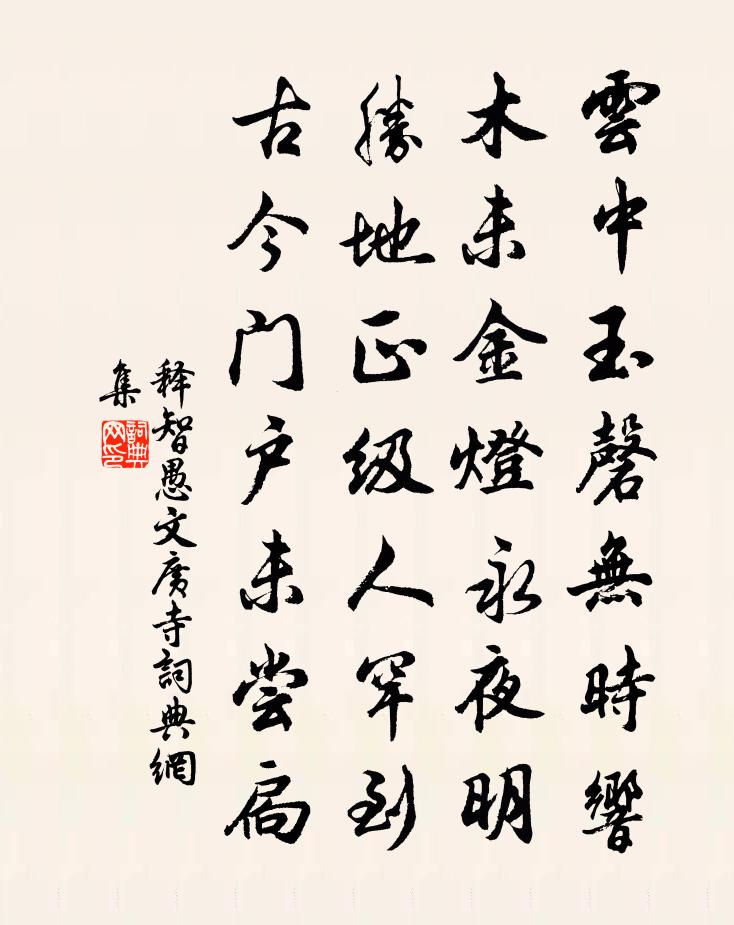 雲中玉磬無時響
木末金燈永夜明
勝地正级人罕到
古今门户未尝扃
释智愚文廣寺詞典網
集
詞典网印